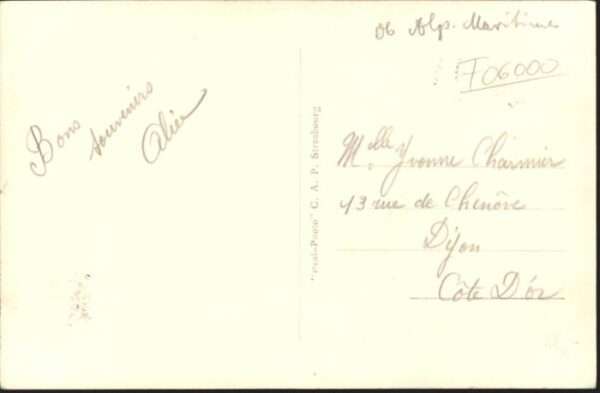 06 Alp. Maritime
F06000
Bons
souvenirs
Alice
"Real-Photo" C. A. P. Strasbourg
Melle Yvonne Charmier
13 rue de Chenôve
Dijon
Côte D'or